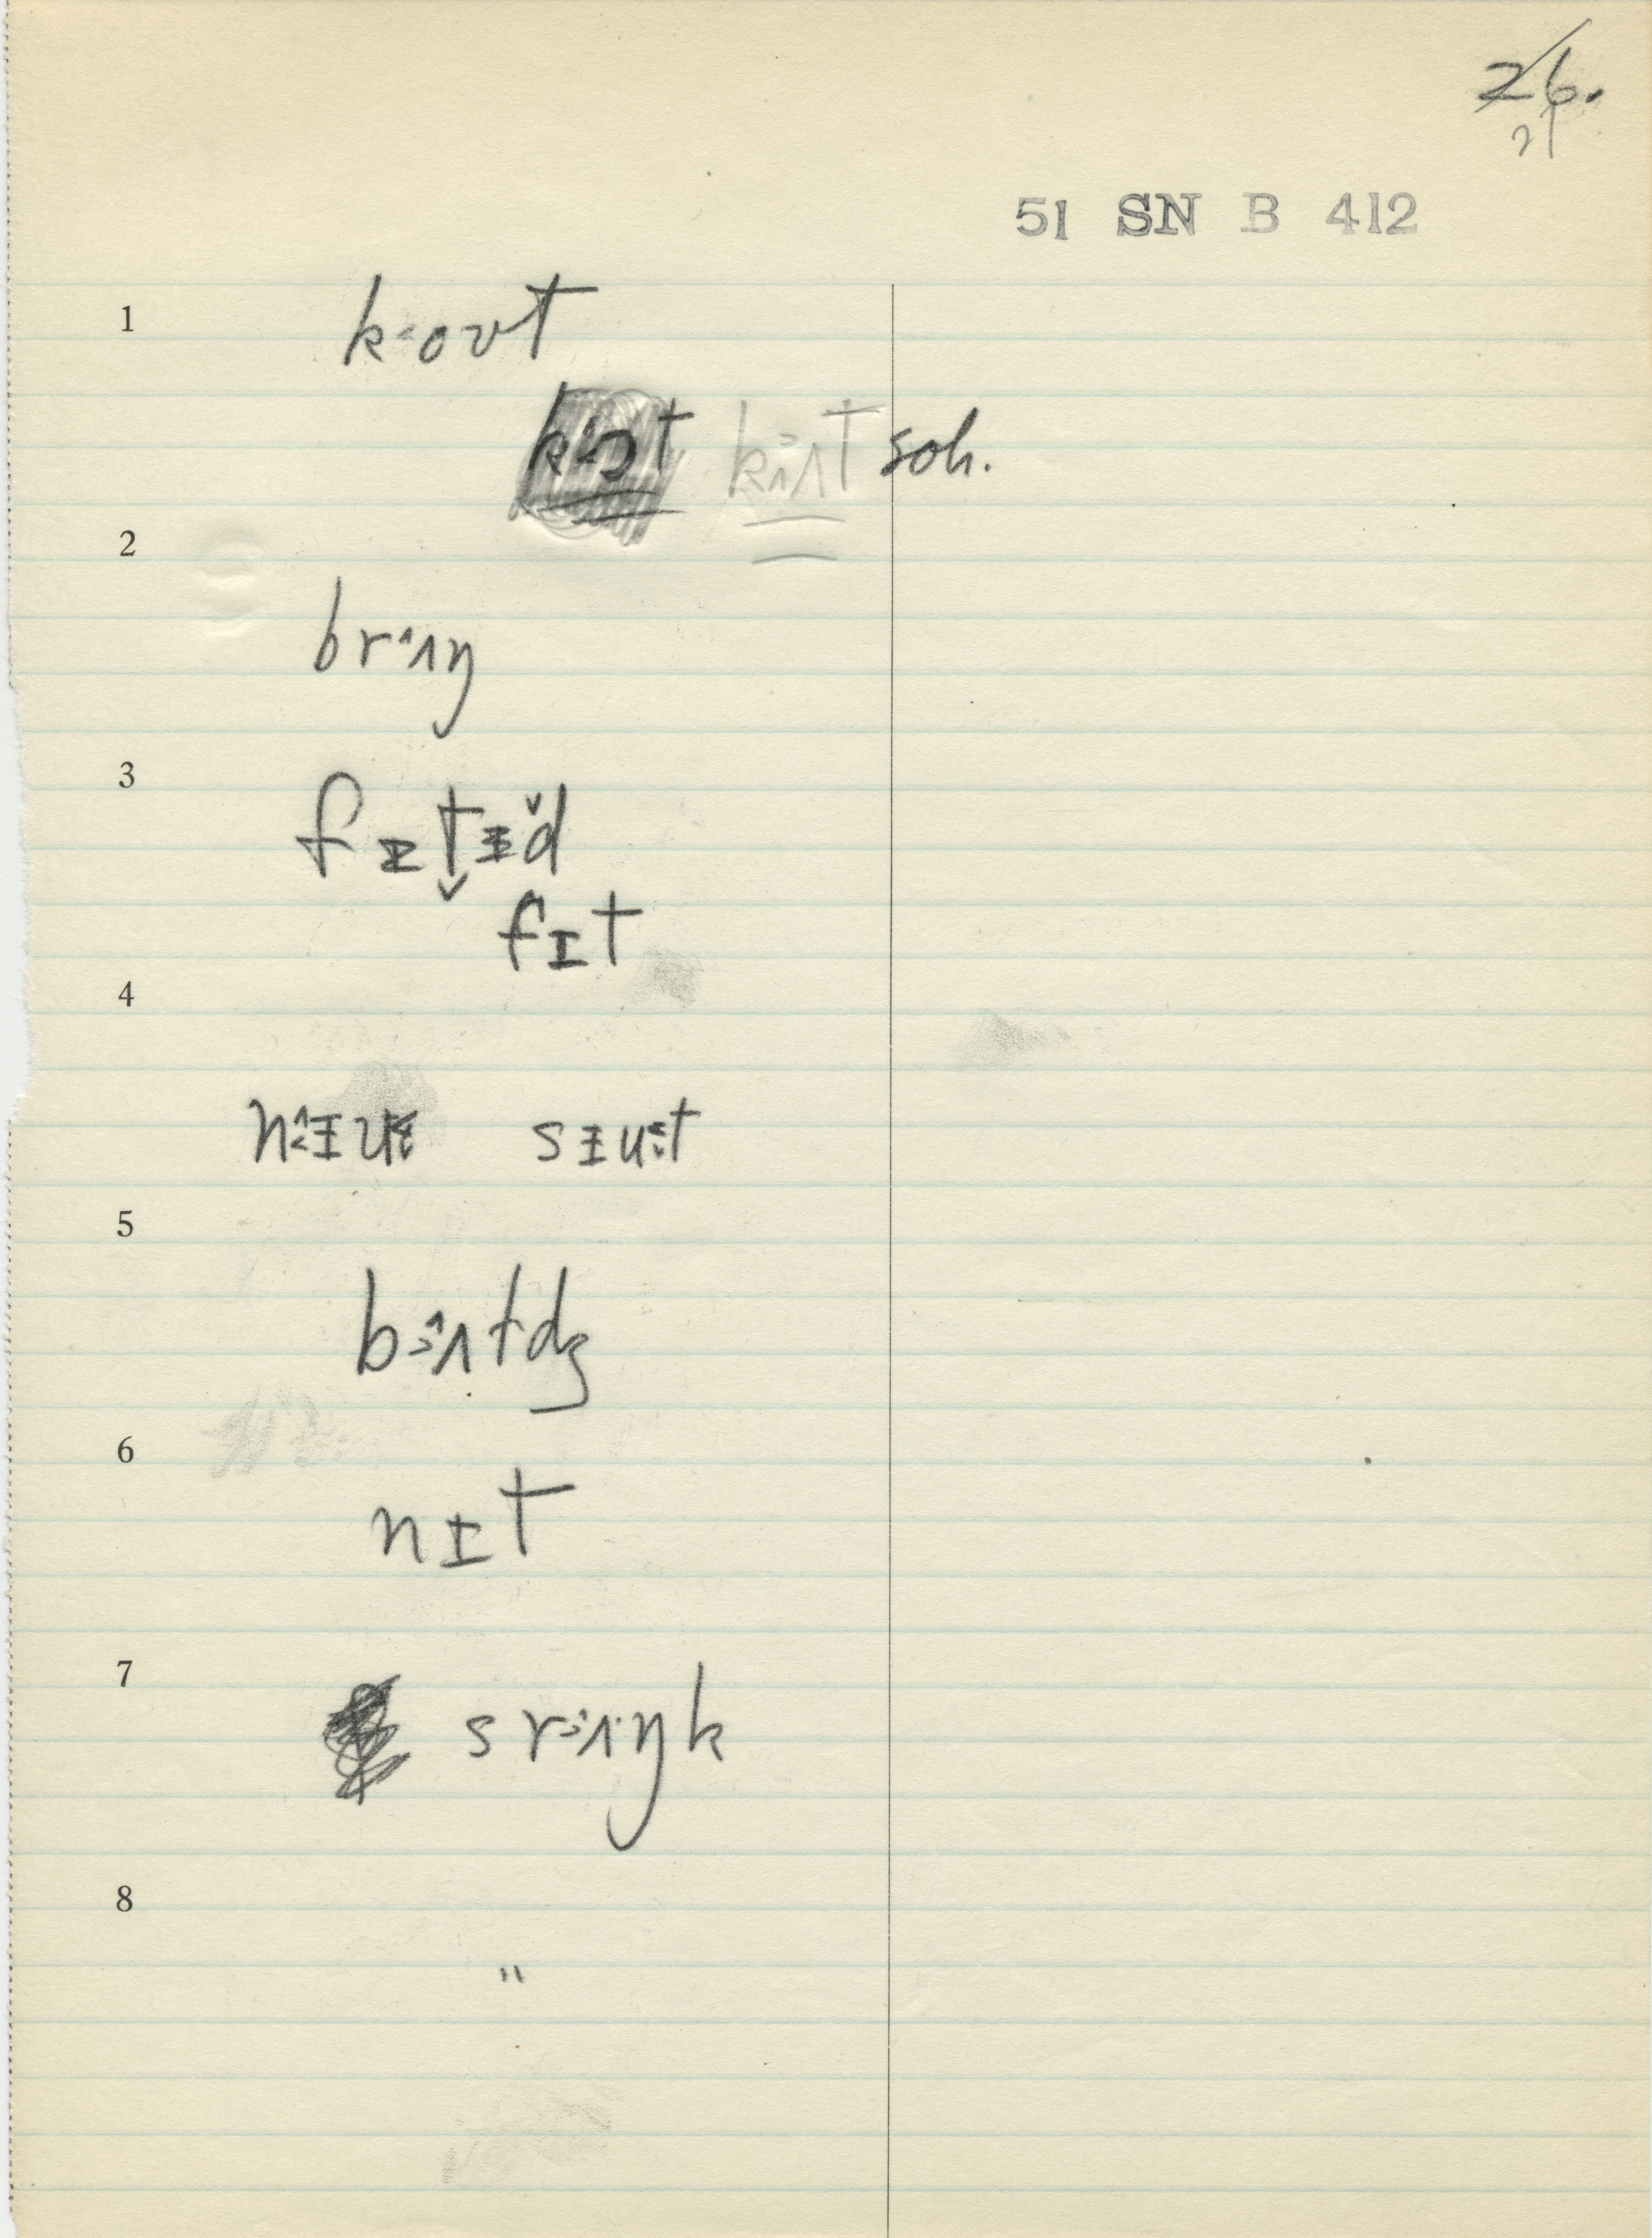 26.
21
51 SN B 412
1
k·ovt
k›ʌt soh.
2
brˑʌŋ
3
fɪtɪd
fɪt
4
nɪu sɪut
5
b›ʌtdʒ
6
nɪt
7
sr›ʌŋk
8
"